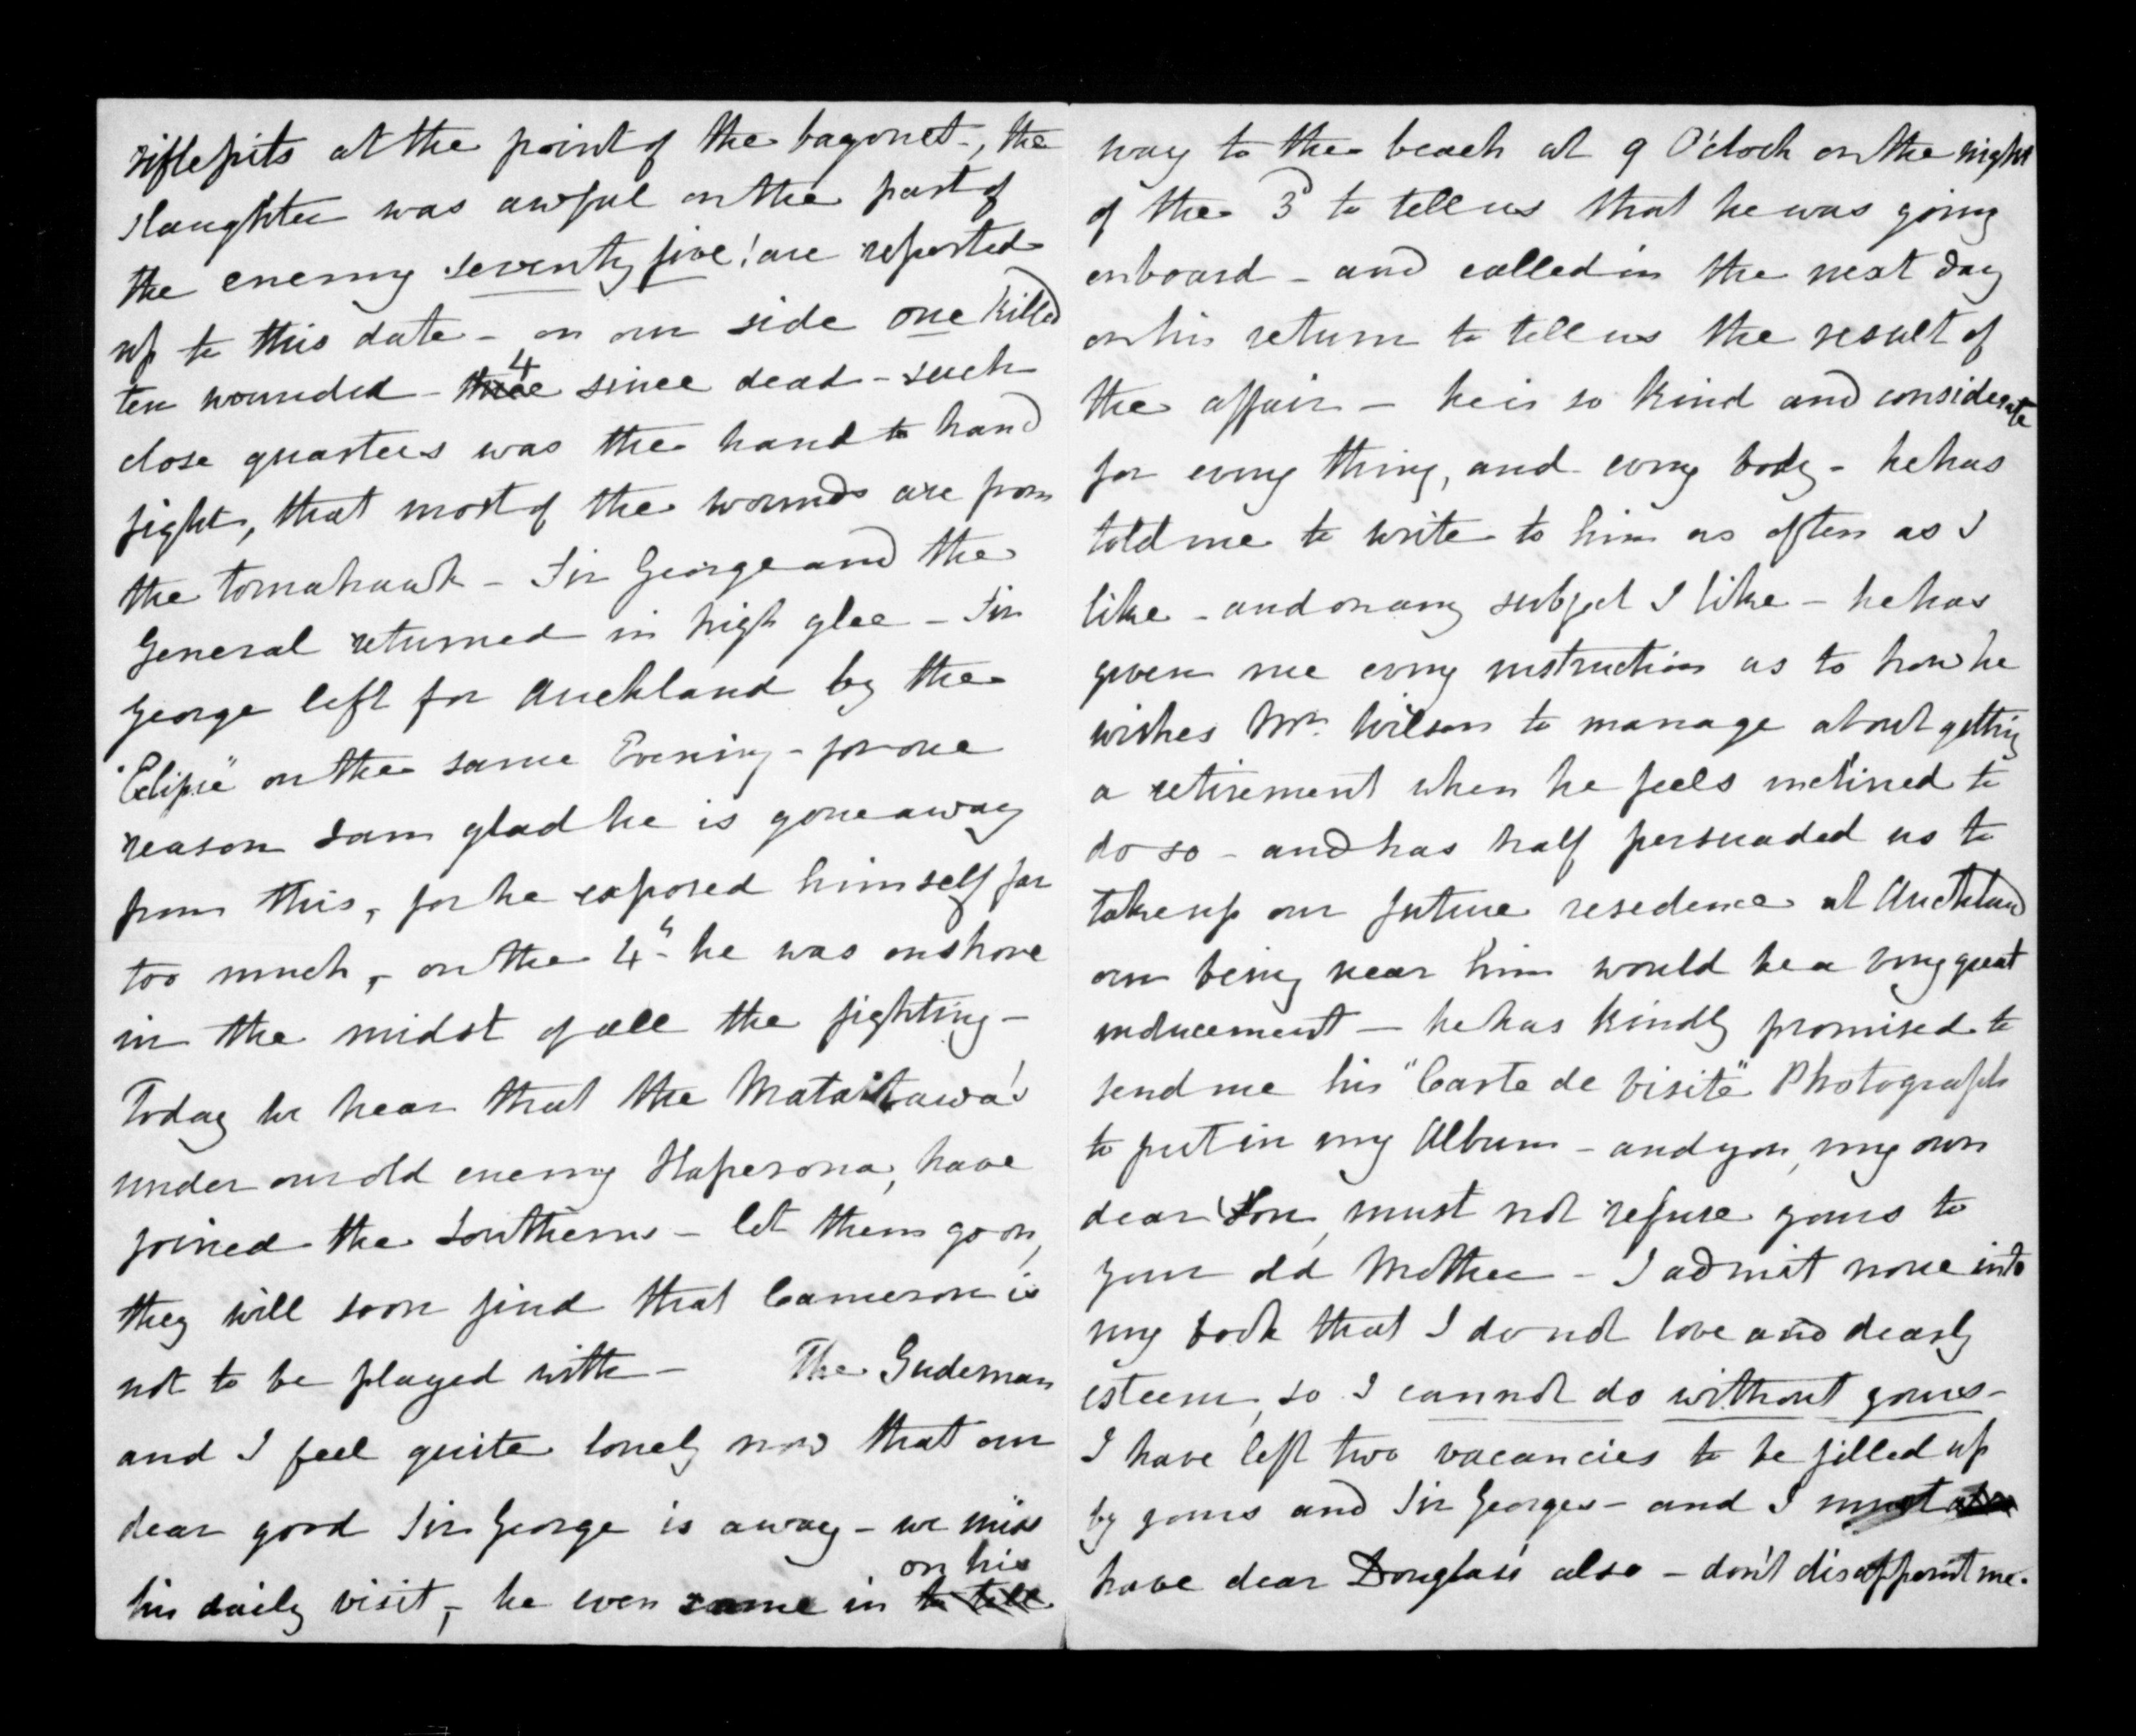 riflepits at the point of the bayonet -, the
slaughter was awful on the part of
the enemy seventy five! are reported
up to this date - on our side one killed
ten wounded - three 4 since dead - such
close quarters was the hand to hand
fight, that most of the wounds are from
the tomahawk - Sir George and the
General returned in high glee - Sir
George left for Auckland by the
"Eclipse" on the same Evening - for one
reason I am glad he is gone away
from this, for he exposed himself far
too much, - on the 4th he was on shore
in the midst of all the fighting -
Today we hear that the Mataitawa's
under our old enemy Hapurona, have
joined the Southerns - let them go on,
they will soon find that Cameron is
not to be played with - The Gudeman
and I feel quite lonely now that our
dear good Sir George is away - we miss
his daily visit, - he even came in to tell on his
way to the beach at 9 O'clock on the night
of the 3d to tell us that he was going
onboard - and called in the next day
on his return to tell us the result of
the affair - he is so kind and considerate
for every thing, and every body - he has
told me to write to him as often as I
like - and on any subject I like - he has
given me every instruction as to how he
wishes Mr. Wilson to manage about getting
a retirement when he feels inclined to
do so - and has half persuaded us to
take up our future resedence at Auckland
our being near him would be a very great
inducement - he has kindly promised to
send me his "Carte de Visite" Photograph
to put in my Album - and you, my own
dear Son, must not refuse yours to
your old Mother - I admit none into
my book that I do not love and dearly
esteem, so I cannot do without yours -
I have left two vacancies to be filled up
by yours and Sir Georges - and I must also
have dear Douglas's also - don't disappoint me.